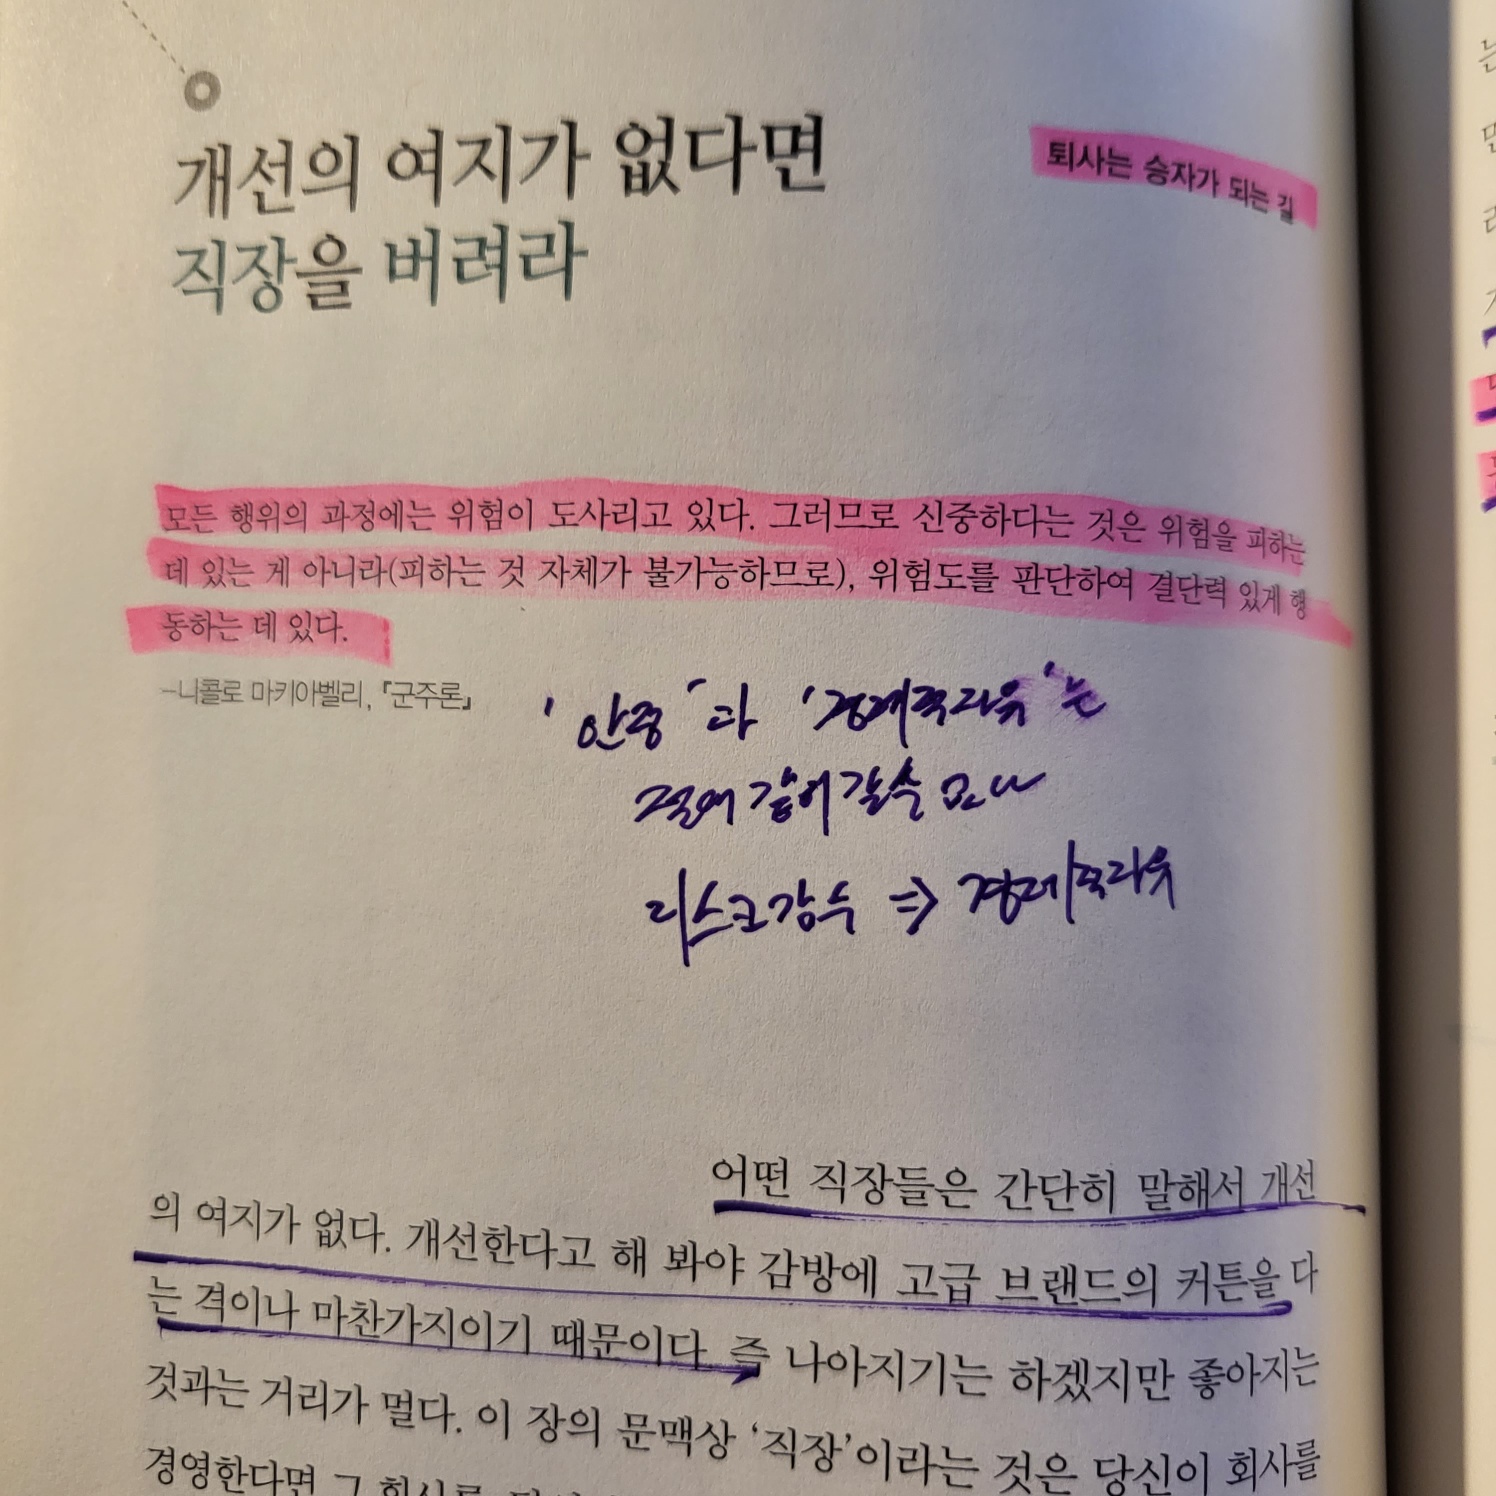 개선의 여지가 없다면
직장을 버려라
퇴사는 승자가 되는 길
모든 행위의 과정에는 위험이 도사리고 있다. 그러므로 신중하다는 것은 위험을 피하는
데 있는 게 아니라(피하는 것 자체가 불가능하므로), 위험도를 판단하여 결단력 있게 행
동하는 데 있다.
-니콜로 마키아벨리, 『군주론』
'안중' 과 '경제적자유'는
절대 같이 갈수
리스크감수 ⇒ 경제적자유
어떤 직장들은 간단히 말해서 개선
의 여지가 없다. 개선한다고 해 봐야 감방에 고급 브랜드의 커튼을 다
는 격이나 마찬가지이기 때문이다. 즉 나아지기는 하겠지만 좋아지는
것과는 거리가 멀다. 이 장의 문맥상 '직장'이라는 것은 당신이 회사를
경영한다면 그 회사를